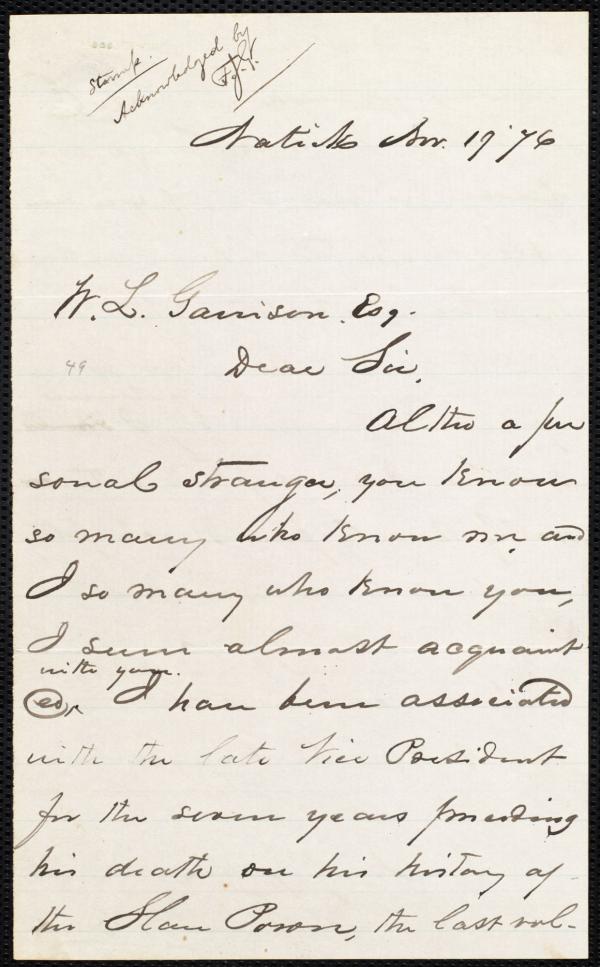 Stamp.
Acknowledged by
F. J. G.
Natick Nov. 19 '76
W. L. Garrison Esq.
49
Dear Sir,
Altho a per
sonal stranger, you know
so many who know me, and
I so many who know you,
I seem almost acquaint
with you.
ed, ^ I have been associated
with the late Vice President
for the seven years preceding
his death on his history of
the Slave Power, the last vol-